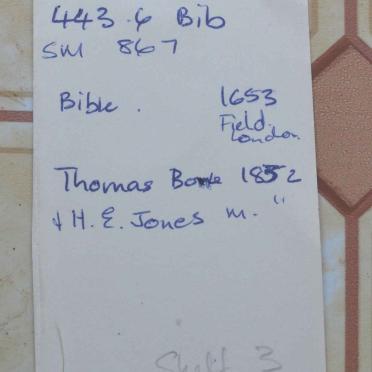 443.6 Bib
SM 867
Bible. 1653
Field.
London
Thomas 1852
+ H. E. Jones m. "
Shelf 3